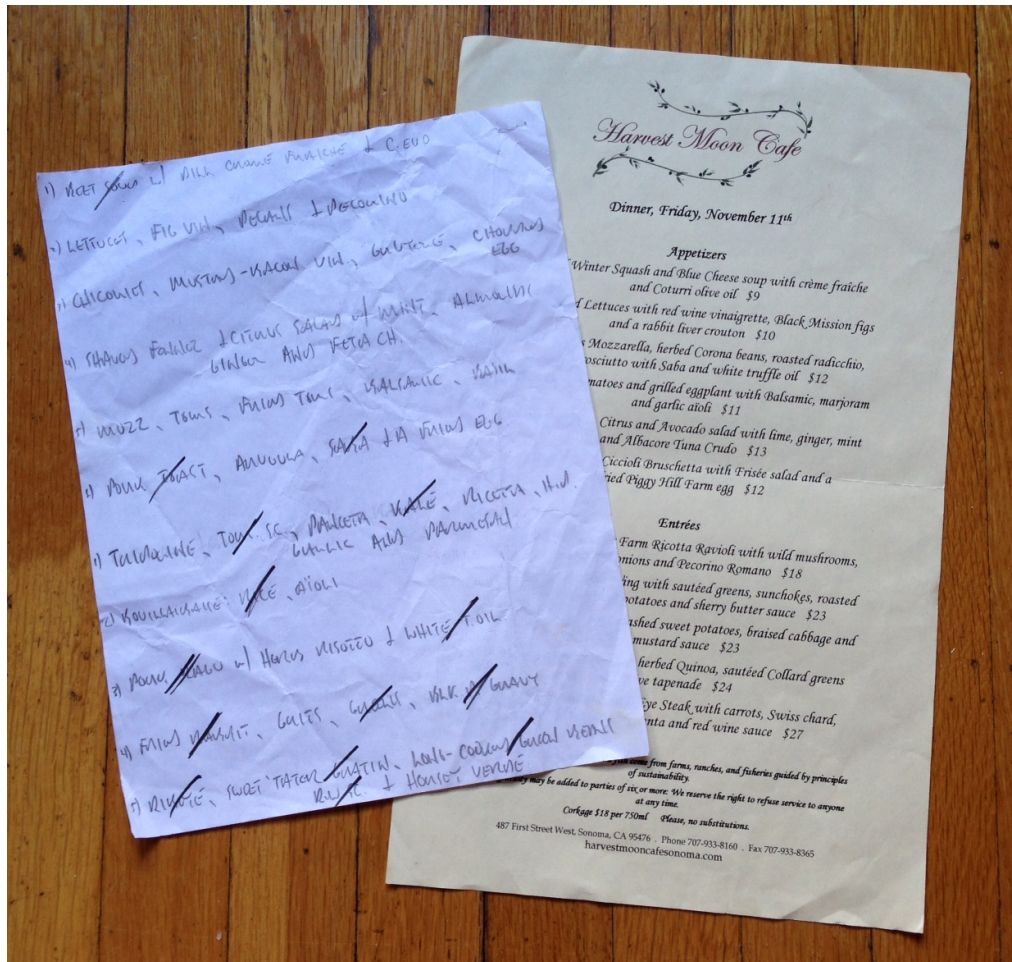 1) BEET SOUP W/ DILL CREME FRAICHE + C.EVO
2) LETTUCES, FIG VIN, PECANS + PECORINO
3) CHICORIES, MUSTARD-BACON VIN, GRUYERE, CHOPPED
EGG
4) SHAVED FENNEL + CITRUS SALAD W/ MINT, ALMONDS
GINGER AND FETA CH.
5) MOZZ, TOMS, FRIED TOMS, BALSAMIC, BASIL
6) PORK TOAST, ARUGULA, SABA + A FRIED EGG
1) TOM SC, PANCETTA, KALE, RICOTTA, H.M.
GARLIC AND PARMESAN
2) BOUILLABAISSE: RICE, AÏOLI
3) PORK W/ HERBED RISOTTO + WHITE T.OIL
4) FRIED RABBIT, GRITS, GREENS, BLK GRAVY
5) RIBEYE, SWEET TATER GRATIN, LONG-COOKED GREEN BEANS
R.W.SC. + HORSEY VERDE
Harvest Moon Cafe
Dinner, Friday, November 11th
Appetizers
Winter Squash and Blue Cheese soup with crème fraîche
and Coturri olive oil $9
Lettuces with red wine vinaigrette, Black Mission figs
and a rabbit liver crouton $10
Mozzarella, herbed Corona beans, roasted radicchio,
with Saba and white truffle oil $12
and grilled eggplant with Balsamic, marjoram
and garlic aïoli $11
Citrus and Avocado salad with lime, ginger, mint
and Albacore Tuna Crudo $13
Ciccioli Bruschetta with Frisée salad and a
Piggy Hill Farm egg $12
Entrées
Farm Ricotta Ravioli with wild mushrooms,
and Pecorino Romano $18
with sautéed greens, sunchokes, roasted
potatoes and sherry butter sauce $23
sweet potatoes, braised cabbage and
mustard sauce $23
herbed Quinoa, sautéed Collard greens
tapenade $24
Steak with carrots, Swiss chard,
and red wine sauce $27
from farms, ranches, and fisheries guided by principles
of sustainability.
may be added to parties of six or more. We reserve the right to refuse service to anyone
at any time.
Corkage $18 per 750ml Please, no substitutions.
487 First Street West, Sonoma, CA 95476 . Phone 707-933-8160 . Fax 707-933-8365
harvestmooncafesonoma.com